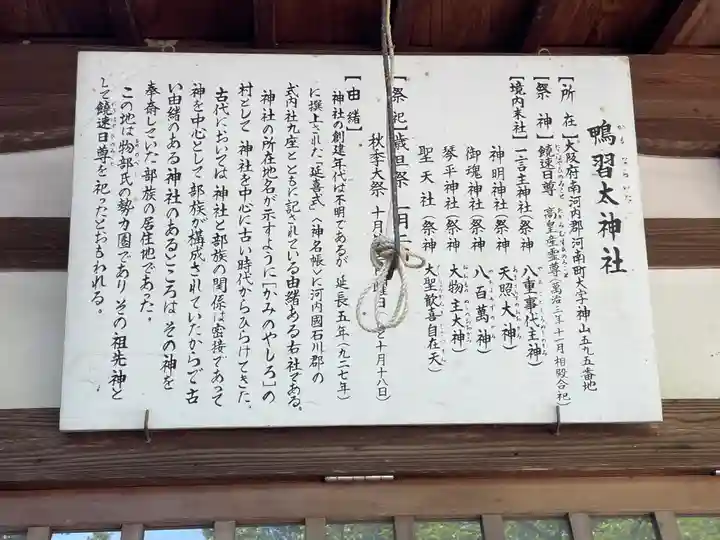 鴨習太神社
かもならいた
【所在】大阪府南河内郡河南町大字神山五九五番地
【祭神】饒速日尊 高皇産霊尊(萬治三年十一月相殿合祀)
【境内末社】一言主神社(祭神 八重事代主神)
神明神社(祭神 天照大神)
御魂神社(祭神 八百萬神)
琴平神社(祭神 大物主大神)
聖天社(祭神 大聖歓喜自在天)
【祭祀】歳旦祭 一月一
秋季大祭 十月 曜日 十月十八日)
【由緒】
神社の創建年代は不明であるが 延長五年(九二七年)
に撰上された「延喜式」〈神名帳〉に河内國石川郡の
式内社九座とともに記されている由緒ある古社である。
神社の所在地名が示すように「かみのやしろ」の
村として 神社を中心に古い時代からひらけてきた。
古代においては 神社と部族の関係は密接であって
神を中心として 部族が構成されていたからで 古
い由緒のある神社のあるところは その神を
奉斎していた部族の居住地であった。
この地は物部氏の勢力圏であり その祖先神と
して饒速日尊を祀ったとおもわれる。